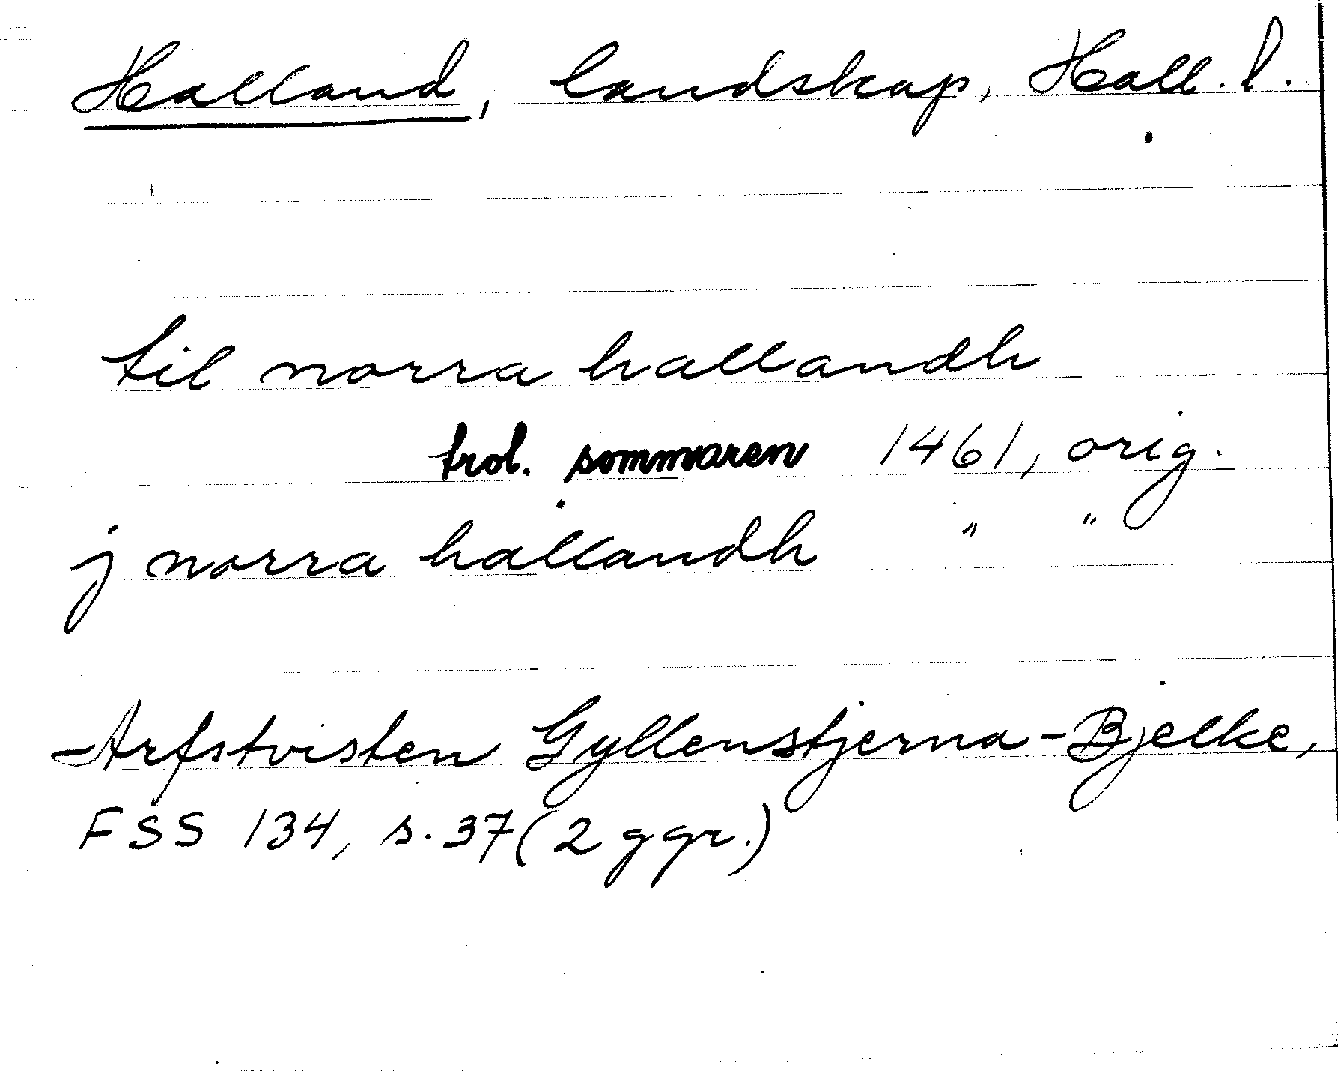 Halland, landskap, Hall. l.
til norra hallandh
trol. sommaren 1461, orig.
j norra hallandh " "
Arfstvisten Gyllenstjerna-Bjelke,
FSS 134, s. 37 (2 ggr.)